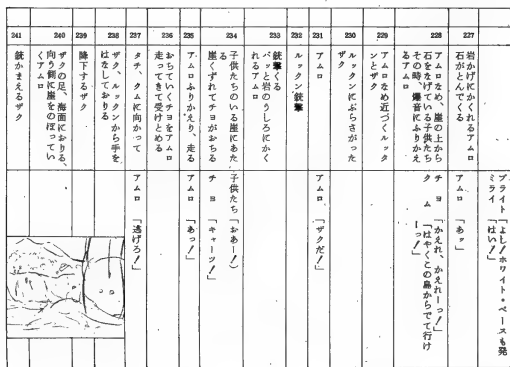 ブライト 「よし!ホワイト・ベースも発
ミライ 「はい!」
227
岩かげにかくれるアムロ
石がとんでくる
アムロ 「あッ」
228
アムロなめ、崖の上から
石をなげている子供たち
その時、爆音にふりかえ
るアムロ
チヨ 「かえれ、かえれーっ!」
クム 「はやくこの島からでて行け
ーっ!」
229
アムロなめ近づくルッグ
ンとザク
230
ルッグンにぶらさがった
ザク
231
アムロ
アムロ 「ザクだ!」
232
ルッグン銃撃
233
銃撃くる
パッと岩のうしろにかく
れるアムロ
234
子供たちのいる崖にあた
る
崖くずれてチヨがおちる
子供たち 「おあー!」
チヨ 「キャーッ!」
235
アムロふりかえり、走る
アムロ 「あっ!」
236
おちていくチヨをアムロ
走ってきて受けとめる
237
タチ、クムに向かって
アムロ 「逃げろ!」
238
ザク、ルッグンから手を
はなしておりる
239
降下するザク
240
ザクの足、海面におりる、
向う側に崖をのぼってい
くアムロ
241
銃かまえるザク